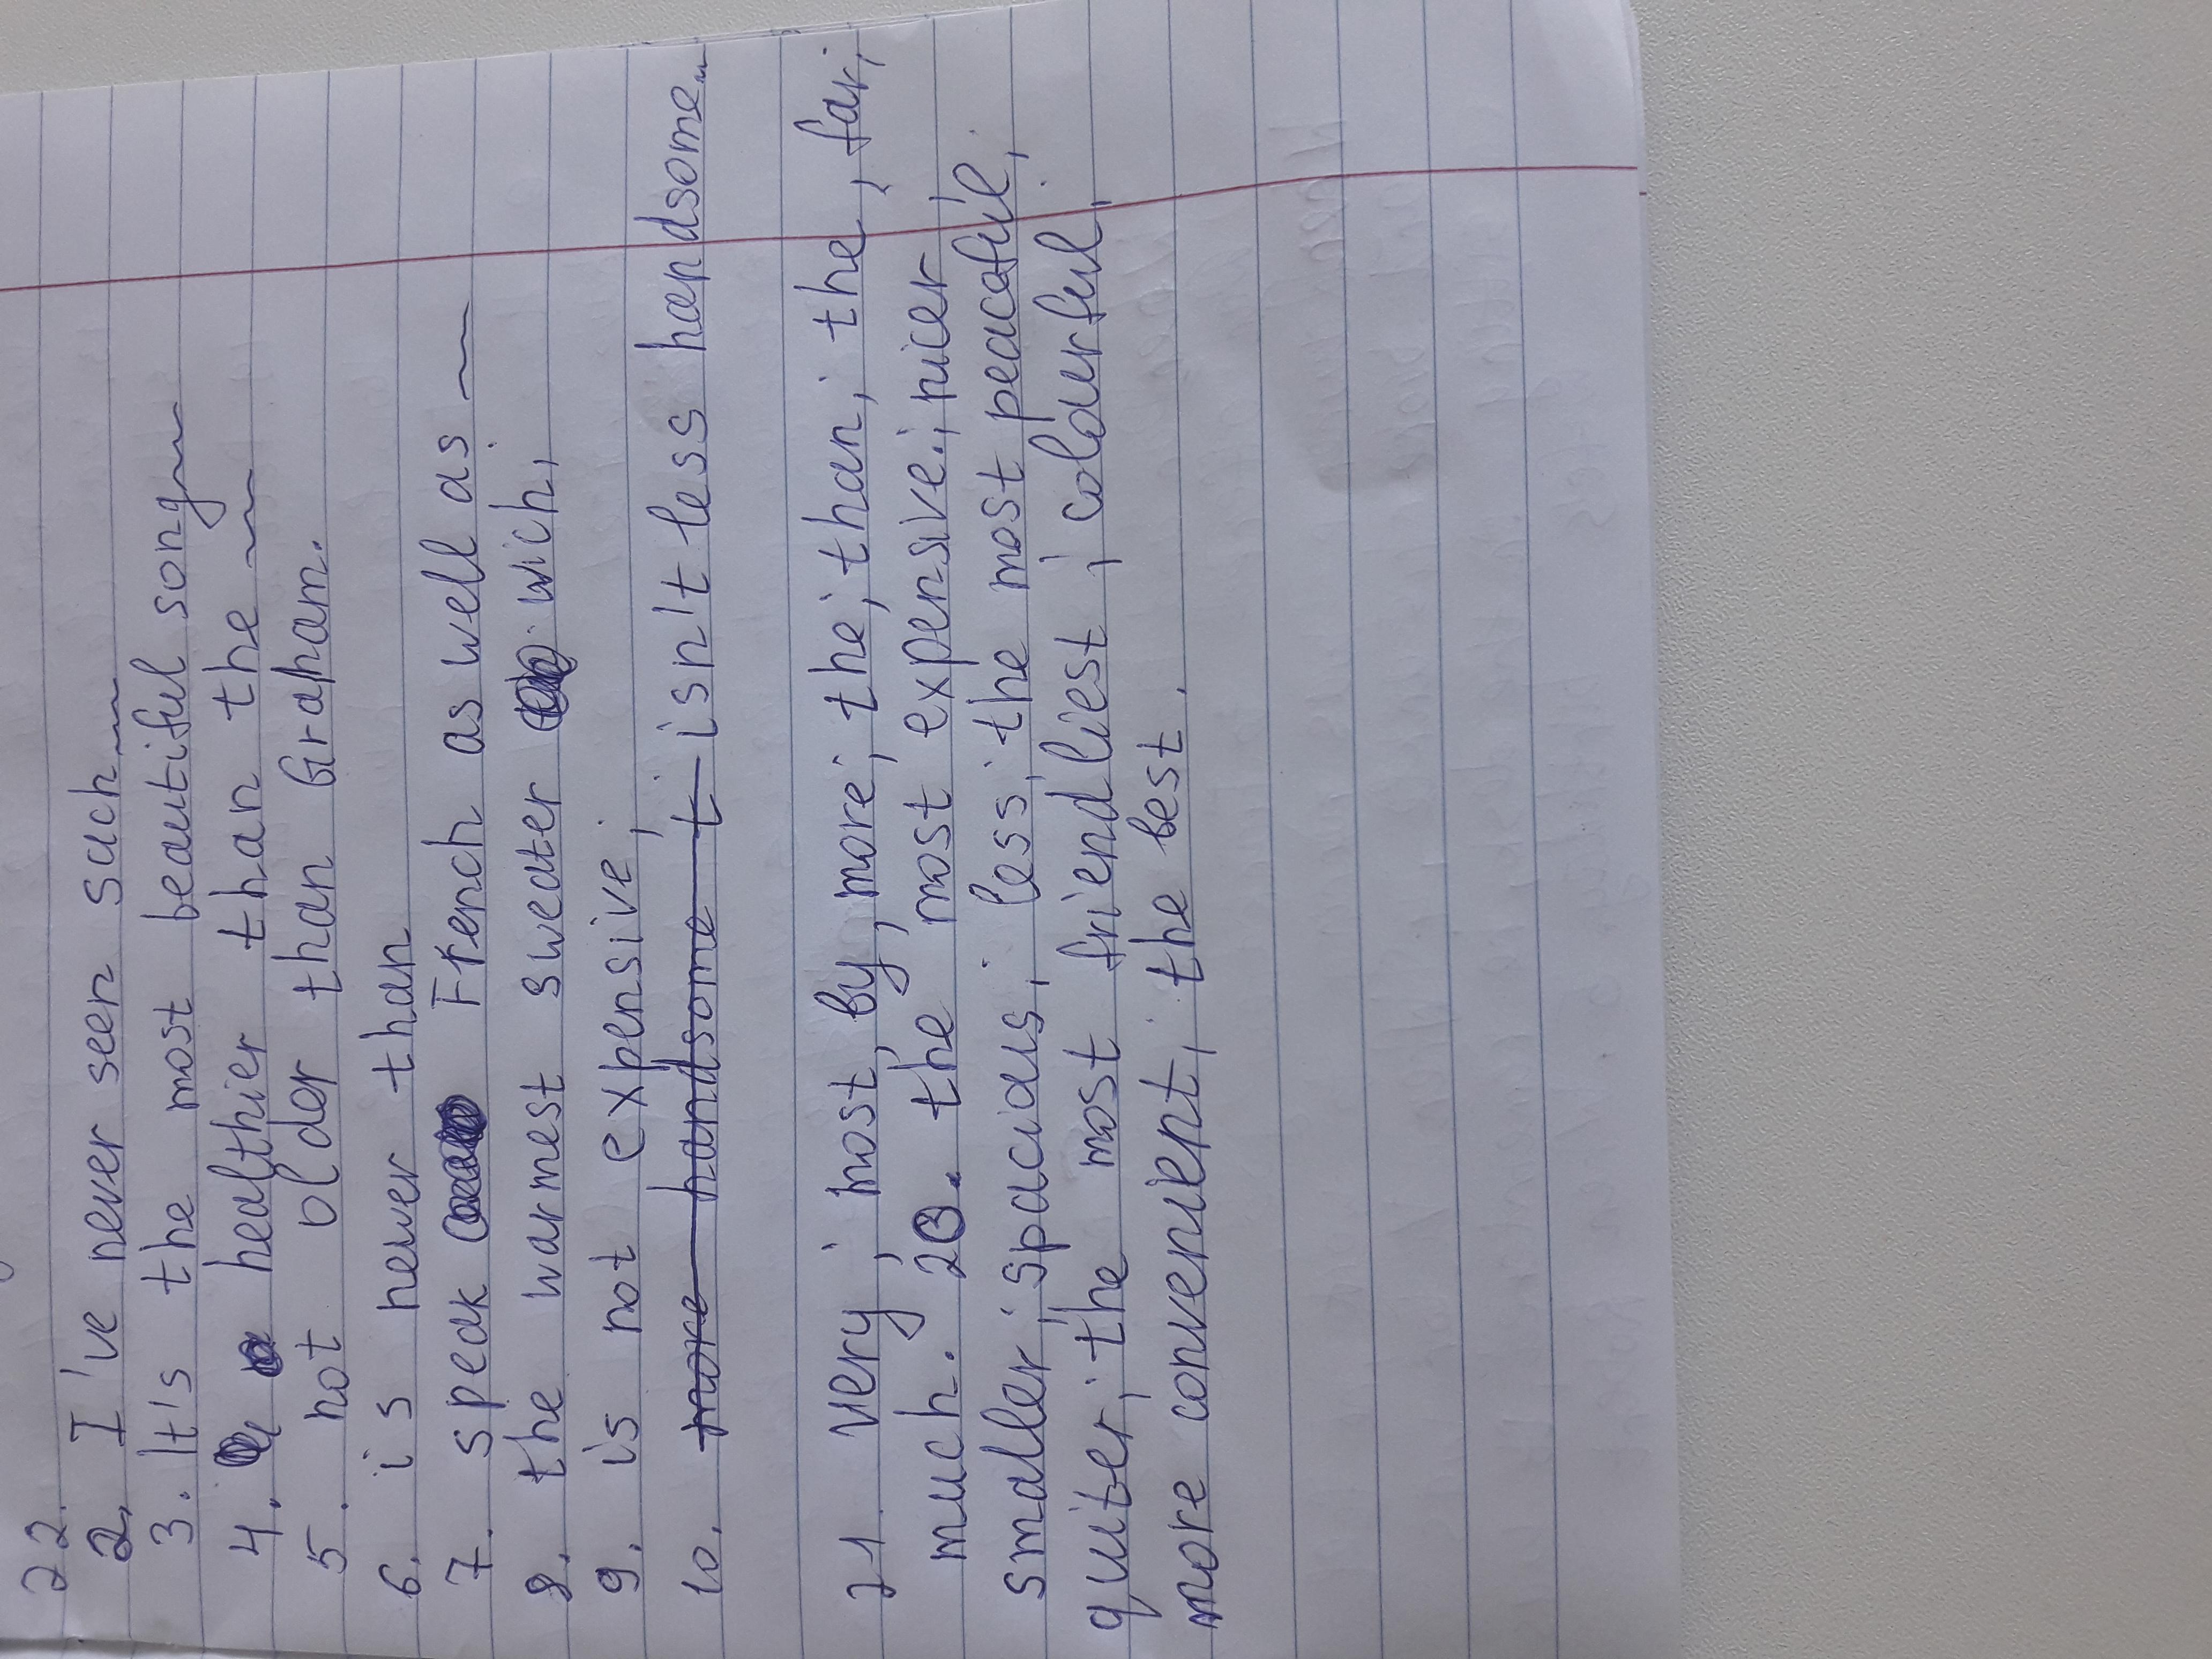 22.
2. I've never seen such
3. It's the most beautiful song
4. healthier than the
5. not older than Graham.
6. is newer than
7. speak French as well as
8. the warmest sweater wich,
9. is not expensive;
10. more handsome t isn't less handsome
21. very; most, by, more; the; than; the, far;
much. 20. the most expensive; nicer;
smaller; spacious; less; the most peaceful;
quiter; the most friendliest; colourful;
more convenient; the best.